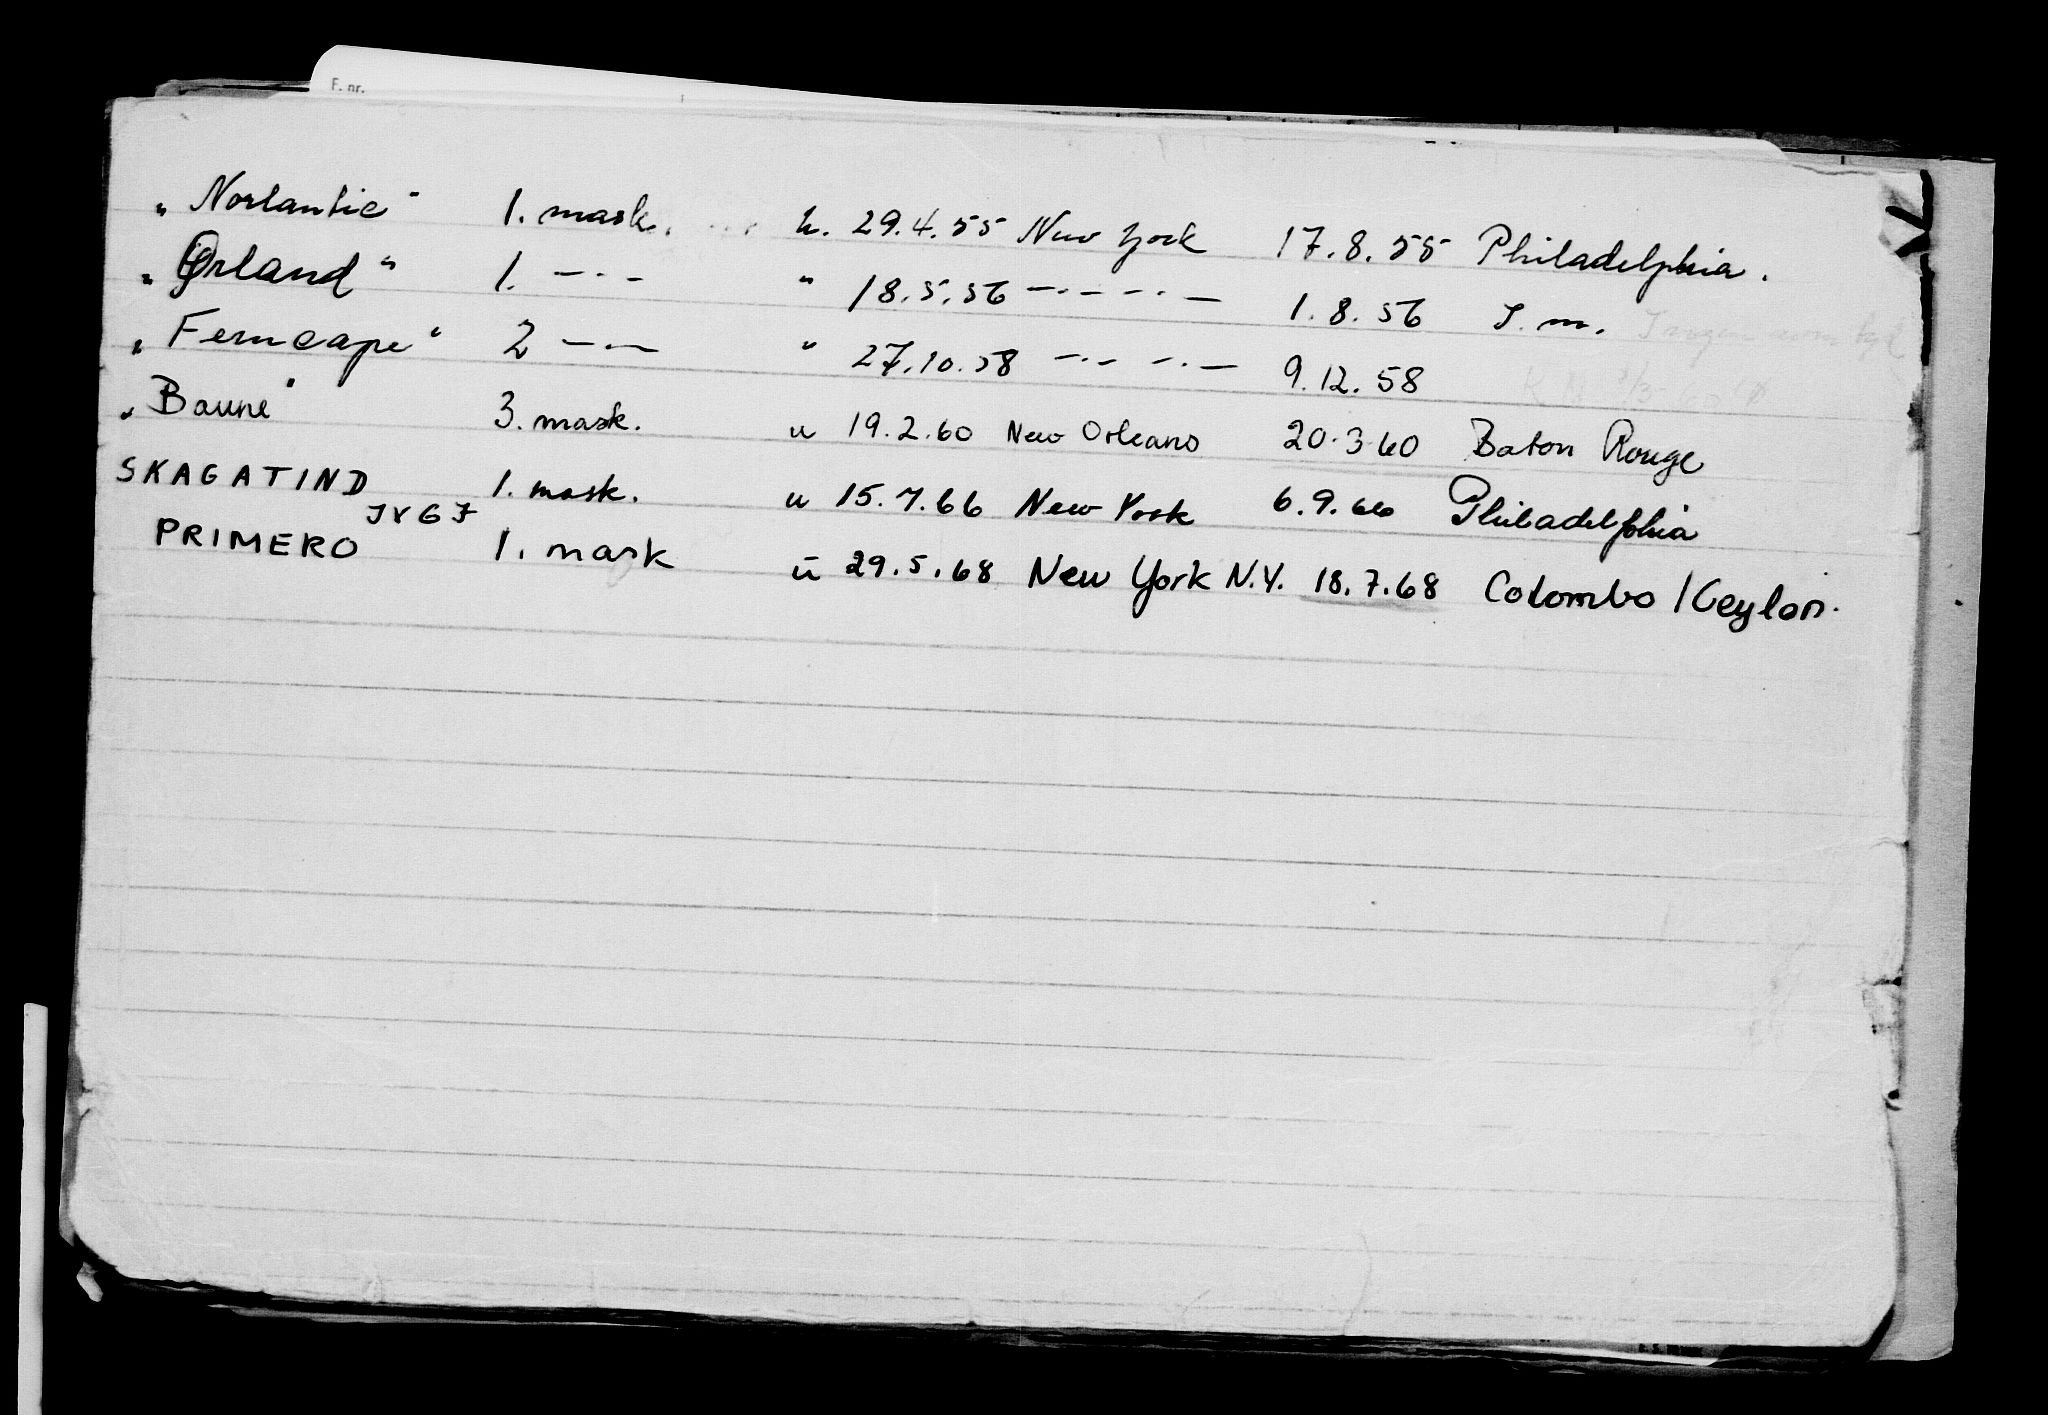 F. nr.
„Norlantic" 1. mask. u. 29.4.55 New York 17.8.55 Philadelphia.
„Ørland" 1. — · — " 18.5.56 — · — — · — 1.8.56 S. m.
„Ferncape" 2 — · — " 27.10.58 — · — — · — 9.12.58
„Baune" 3. mask. u 19.2.60 New Orleans 20.3.60 Baton Rouge
SKAGATIND 1. mask. u 15.7.66 New York 6.9.66 Philadelphia
JXGJ
PRIMERO 1. mask u 29.5.68 New York N.Y. 18.7.68 Colombo / Ceylon.